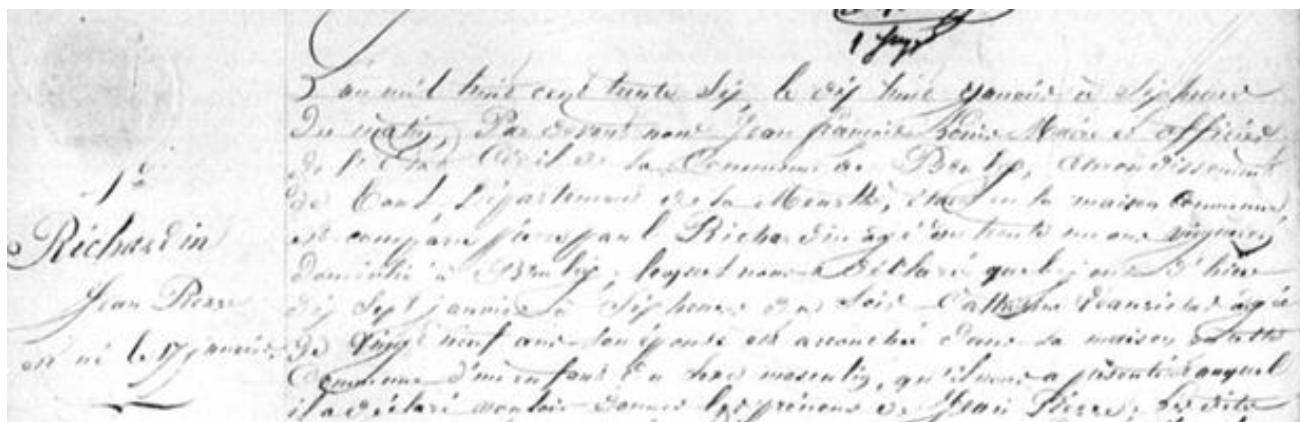 1er
Richardin
Jean Pierre
est né le 17 janvier
L'an mil huit cent trente sept, le dix huit Janvier à sept heures
du matin, Par devant nous Jean françois Maire et officier
de l'état Civil de la Commune de arrondissement
de Toul, Département de la Meurthe, étant en la maison Commune
est comparu pierre paul Richardin âgé de trente un ans vigneron
domicilié à lequel nous a déclaré que le jour d'hier
dix sept janvier à sept heures du Soir Catherine âgée
de vingt neuf ans son épouse est accouchée dans sa maison en cette
Commune d'un enfant du sexe masculin, qu'il nous a présenté & auquel
il a déclaré vouloir donner les prénoms de Jean Pierre, les dites